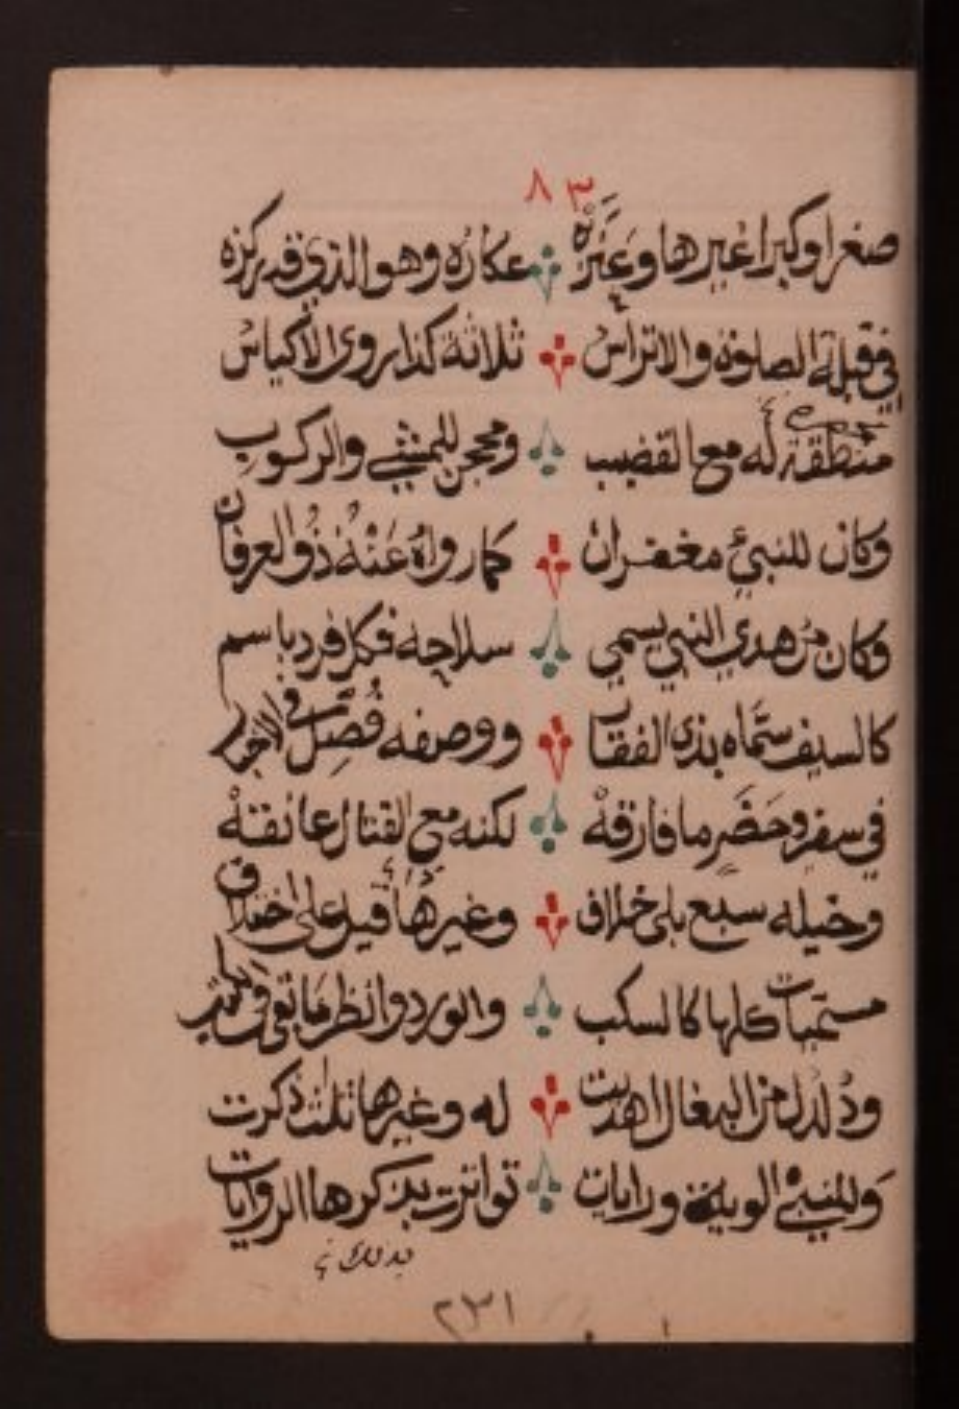 ٨٣
صغرا وكبرا غيرها وعَنَزَهْ عكازه وهو الذي قد ركزه
في قبلة الصلوة والاتراسُ ثلاثة كذا روى الاكياسُ
منطقة له مع القضيب ومحجن للمشي والركوب
وكان للنبيّ مغفران كما رواهُ عَنْهُ ذُو العرفان
وكان من هدي النبي يسمي سلاحه فكل فرد باسم
كالسيف سمّاه بذي الفقار ووصفه فُصّل في
في سفر وحَضَرٍ ما فارقهْ لكنه مع القتال عانقهْ
وخيله سبع بلى خلاف وغيرها قيل على اختلاف
مسميات كلها كالسكب والورد وانظر ما بقى في
ودُلدل من البغال اهديت له وغيرها ثلث ذكرت
وللنبيّ الوية ورايات تواترت بذكرها الروايات
١٣٢